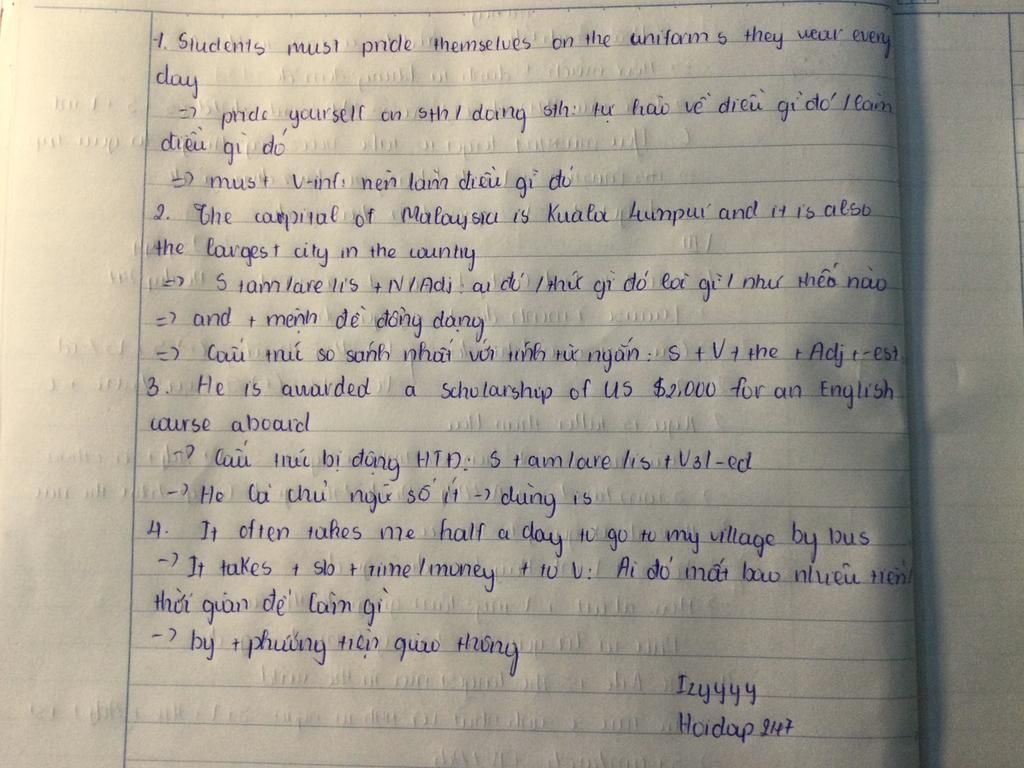 1. Students must pride themselves on the uniforms they wear every
day
=> pride yourself on sth / doing sth: tự hào về điều gì đó / làm
điều gì đó
=> must + V-inf: nên làm điều gì đó
2. The capital of Malaysia is Kuala Lumpur and it is also
the largest city in the country
=> S + am/are/is + N/Adj: ai đó / thứ gì đó là gì / như thế nào
=> and + mệnh đề đồng dạng
=> Cấu trúc so sánh nhất với tính từ ngắn: S + V + the + Adj + -est
3. He is awarded a scholarship of US $2,000 for an English
course aboard
-> Cấu trúc bị động HTĐ: S + am/are/is + V3/-ed
-> He là chủ ngữ số ít -> dùng is
4. It often takes me half a day to go to my village by bus
-> It takes + sb + time/money + to V: Ai đó mất bao nhiêu tiền/
thời gian để làm gì
-> by + phương tiện giao thông
Izyyyy
Hoidap247